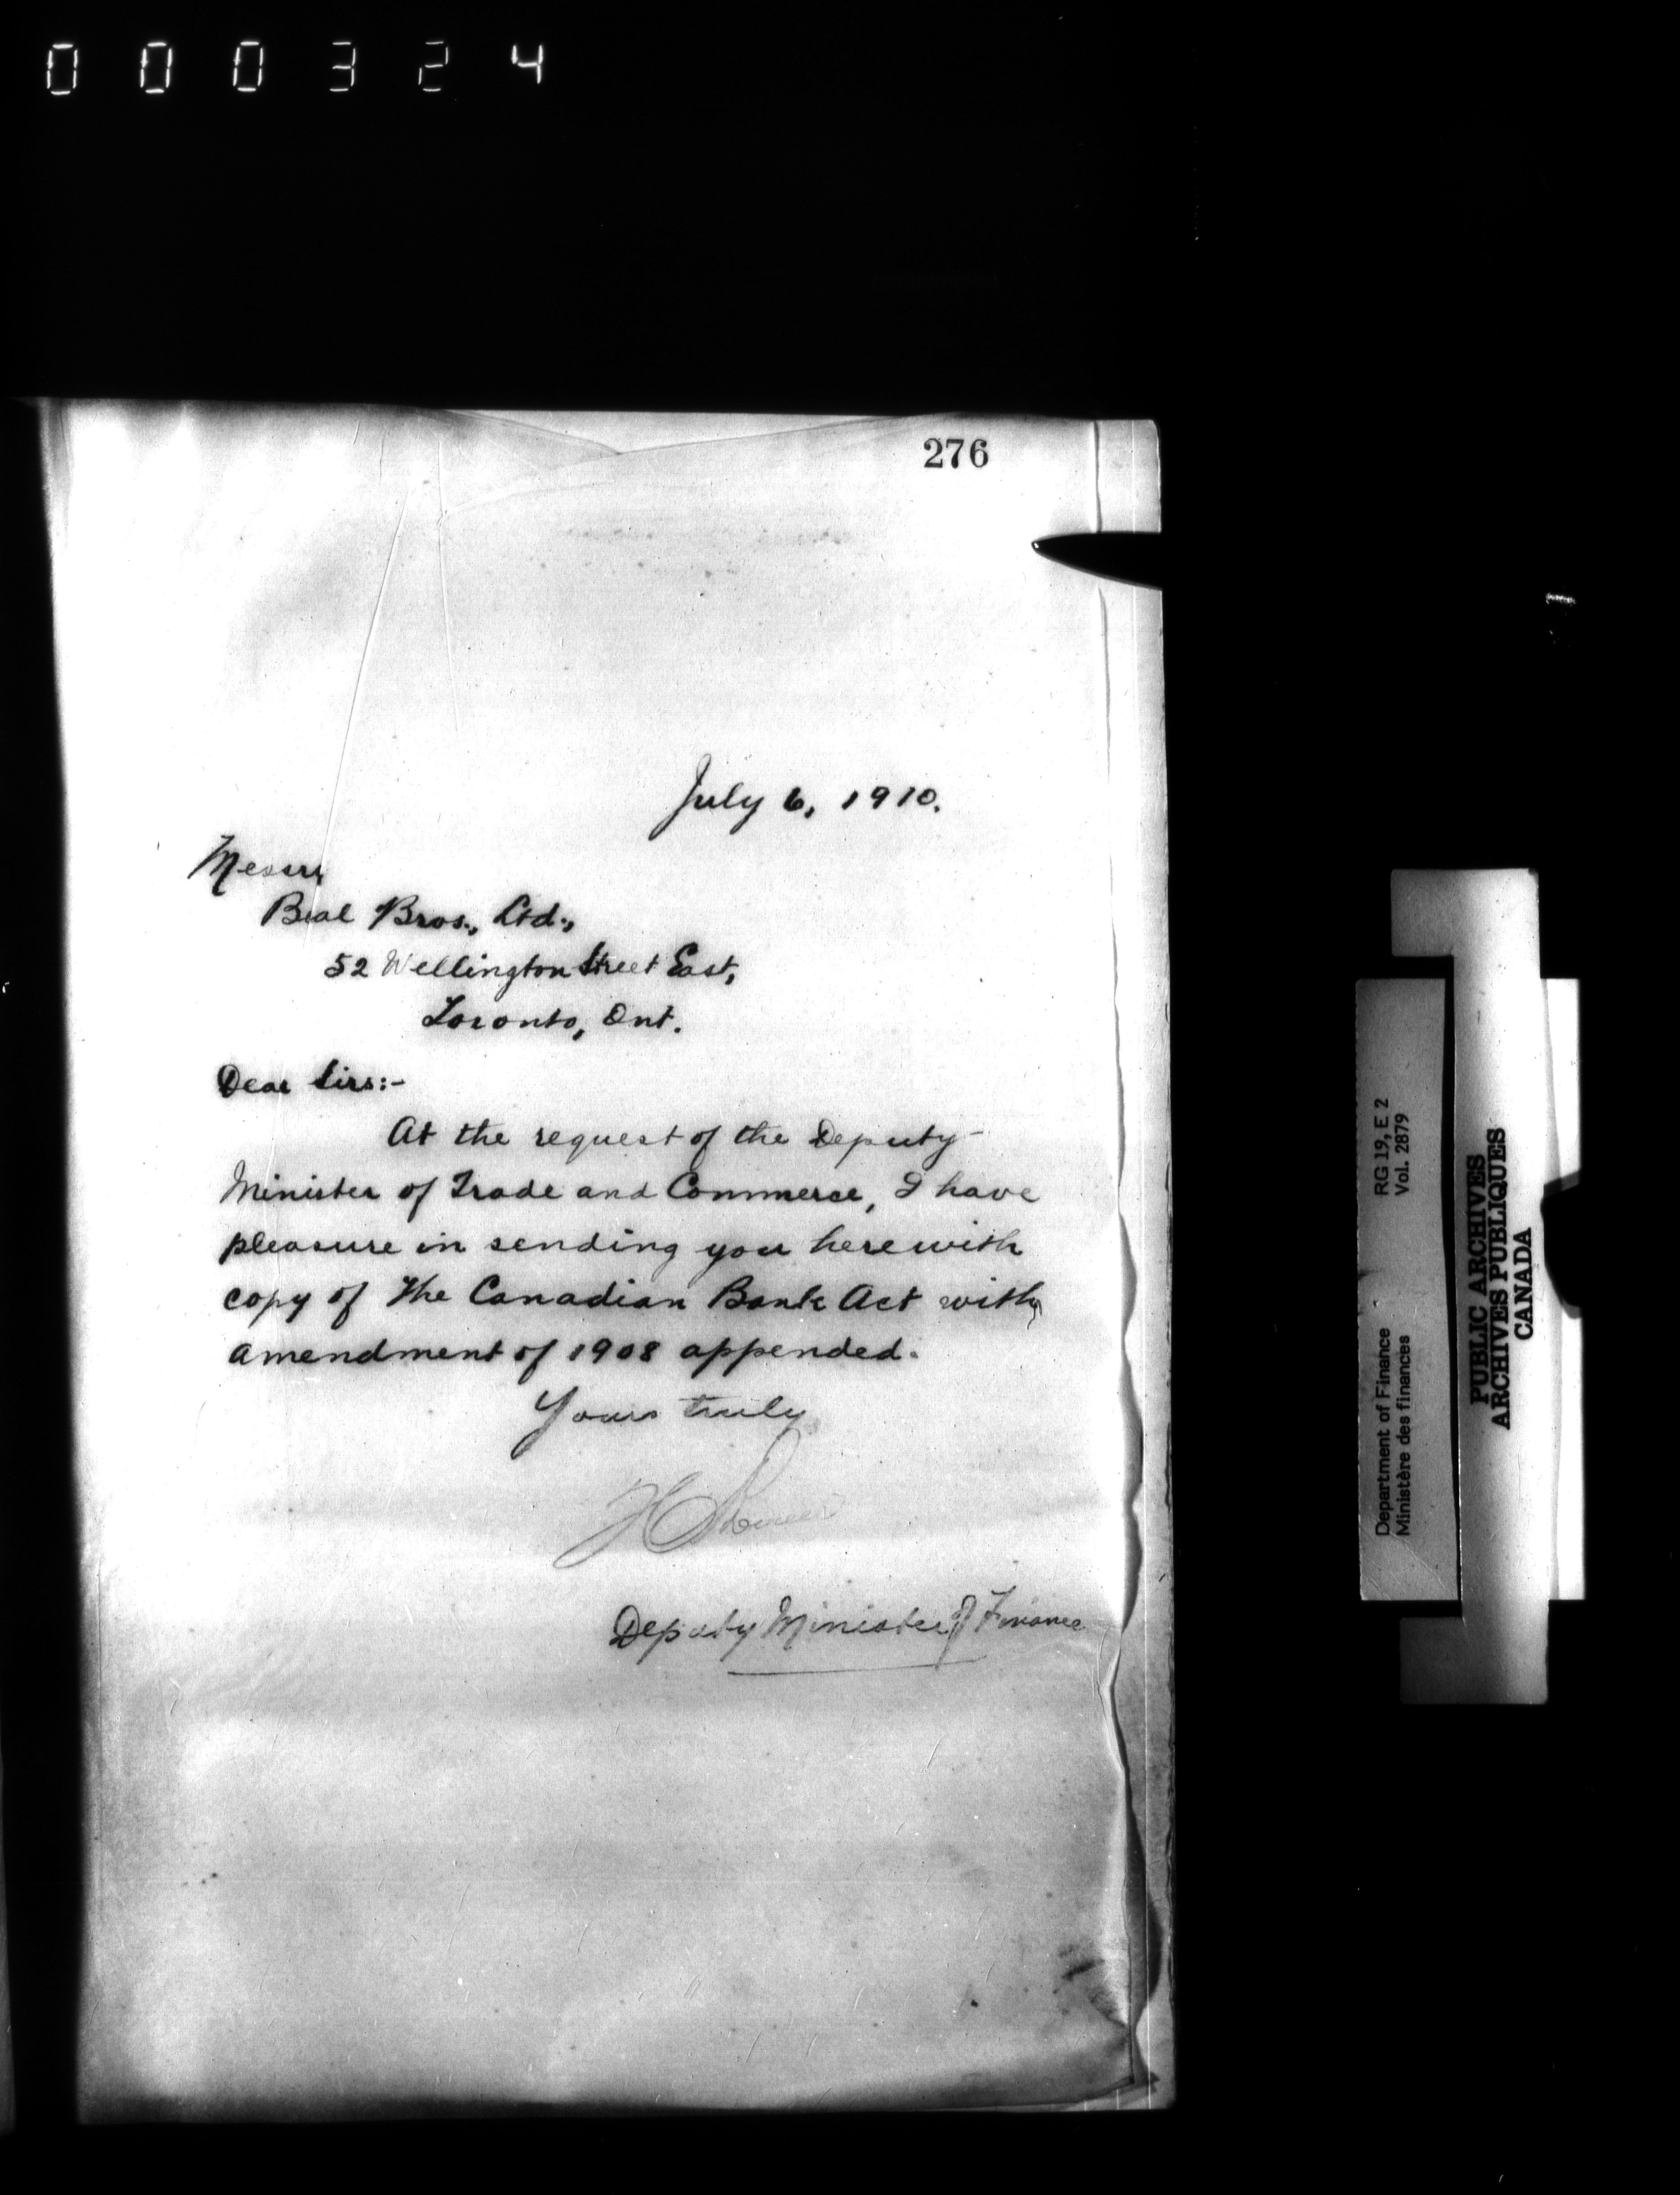 000324
276
July 6, 1910.
Messrs
Beal Bros., Ltd.,
52 Wellington Street East,
Toronto, Ont.
Dear Sirs:-
At the request of the Deputy
Minister of Trade and Commerce, I have
pleasure in sending you herewith
copy of the Canadian Bank Act with
amendment of 1908 appended.
Yours truly
Deputy Minister of Finance
Department of Finance RG 19, E 2
Ministère des finances Vol. 2879
PUBLIC ARCHIVES
ARCHIVES PUBLIQUES
CANADA